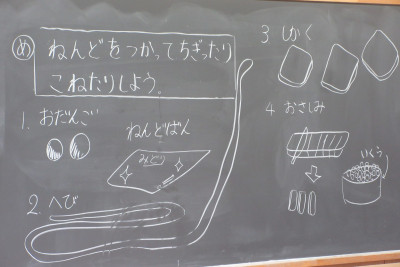 め ねんどをつかってちぎったり
こねたりしよう。
1. おだんご
ねんどばん
みどり
2. へび
3 しかく
4 おさしみ
いくら